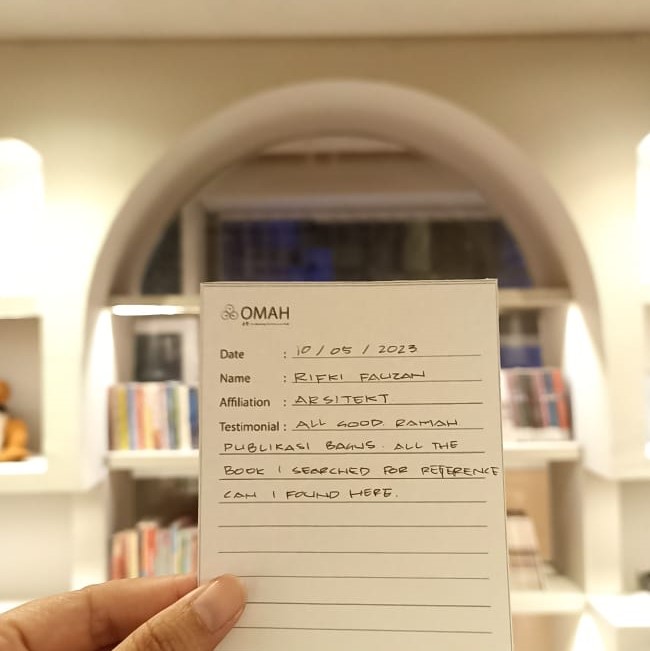 OMAH
Date : 10 / 05 / 2023
Name : RIFKI FAUZAN
Affiliation : ARSITEKT
Testimonial : ALL GOOD. RAMAH
PUBLIKASI BAGUS. ALL THE
BOOK I SEARCHED FOR REFERENCE
CAN I FOUND HERE.